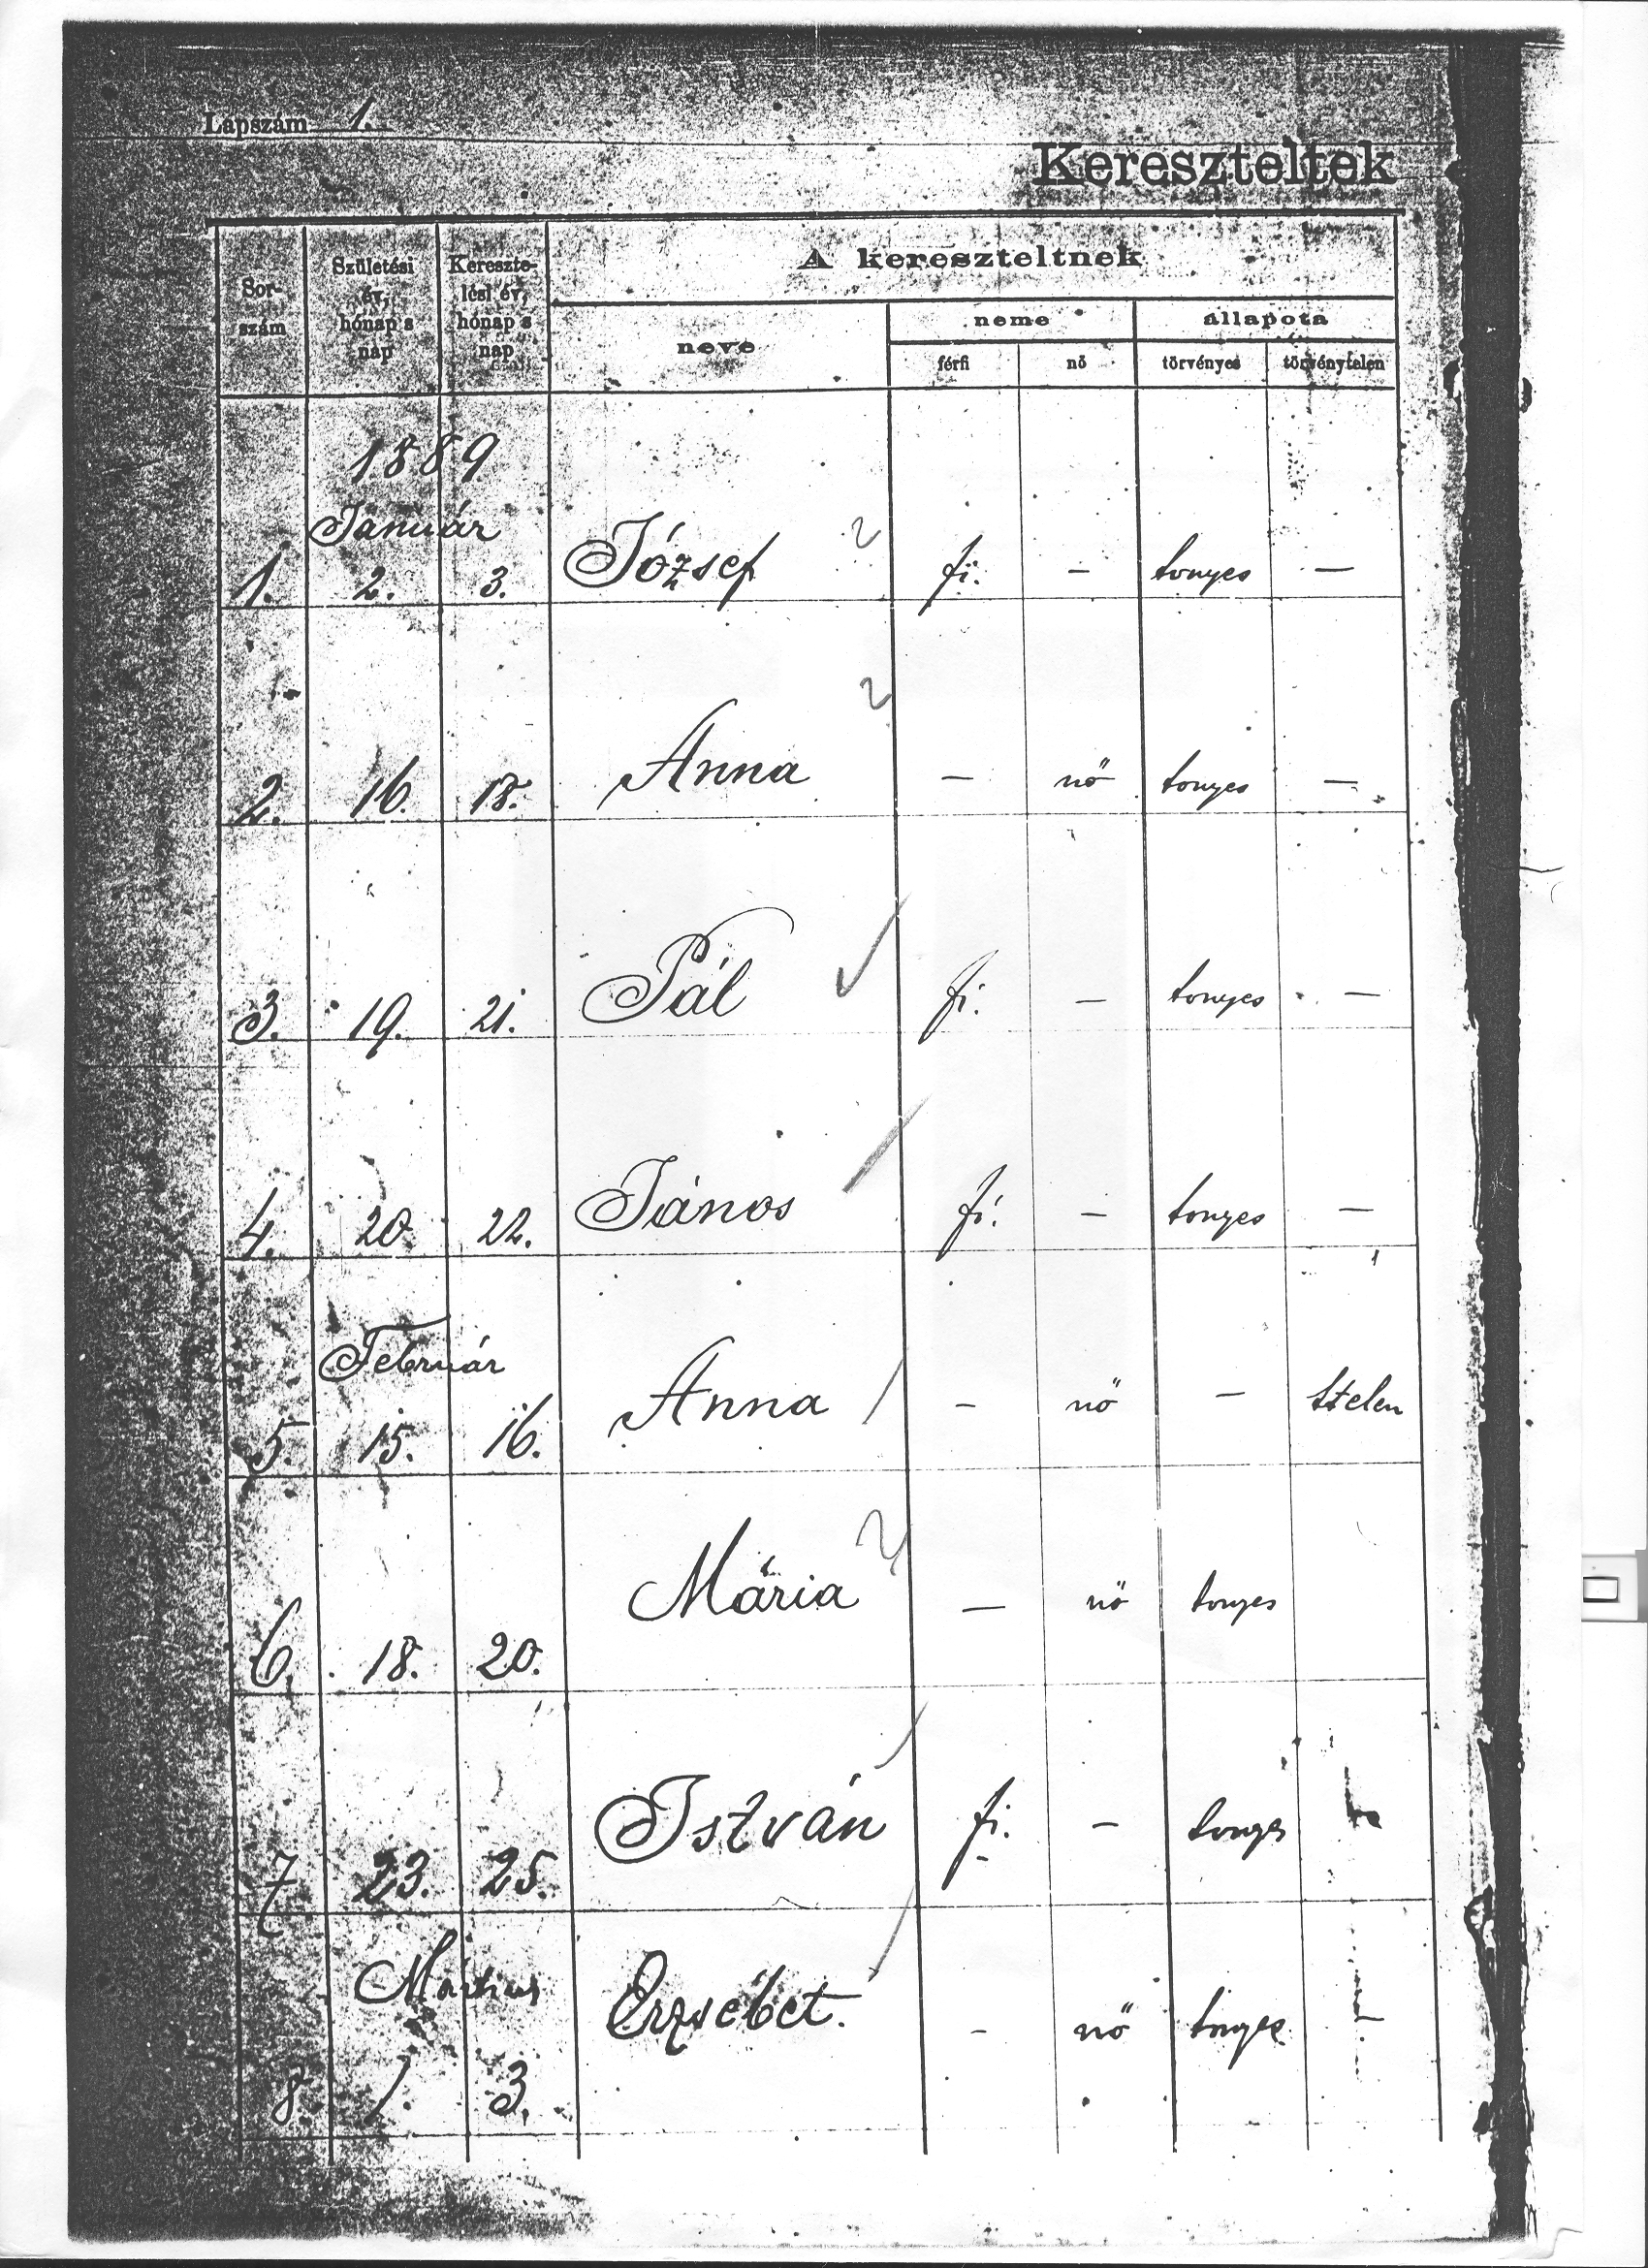 Lapszám 1.
Kereszteltek
Sor-
szám
Születési
év,
hónap s
nap
Kereszte-
lési év,
hónap s
nap
A kereszteltnek
neve
neme
állapota
férfi
nő
törvényes
törvénytelen
1889
Január
1. 2. 3. József fi. — tvnyes —
2. 16. 18. Anna — nő tvnyes —
3. 19. 21. Pál fi. — tvnyes —
4. 20. 22. János fi. — tvnyes —
Február
5. 15. 16. Anna — nő — ttelen
6. 18. 20. Mária — nő tvnyes
7 23. 25. István fi. — tvnyes
Mártius
8 1. 3. Erzsébet. — nő tvnyes —